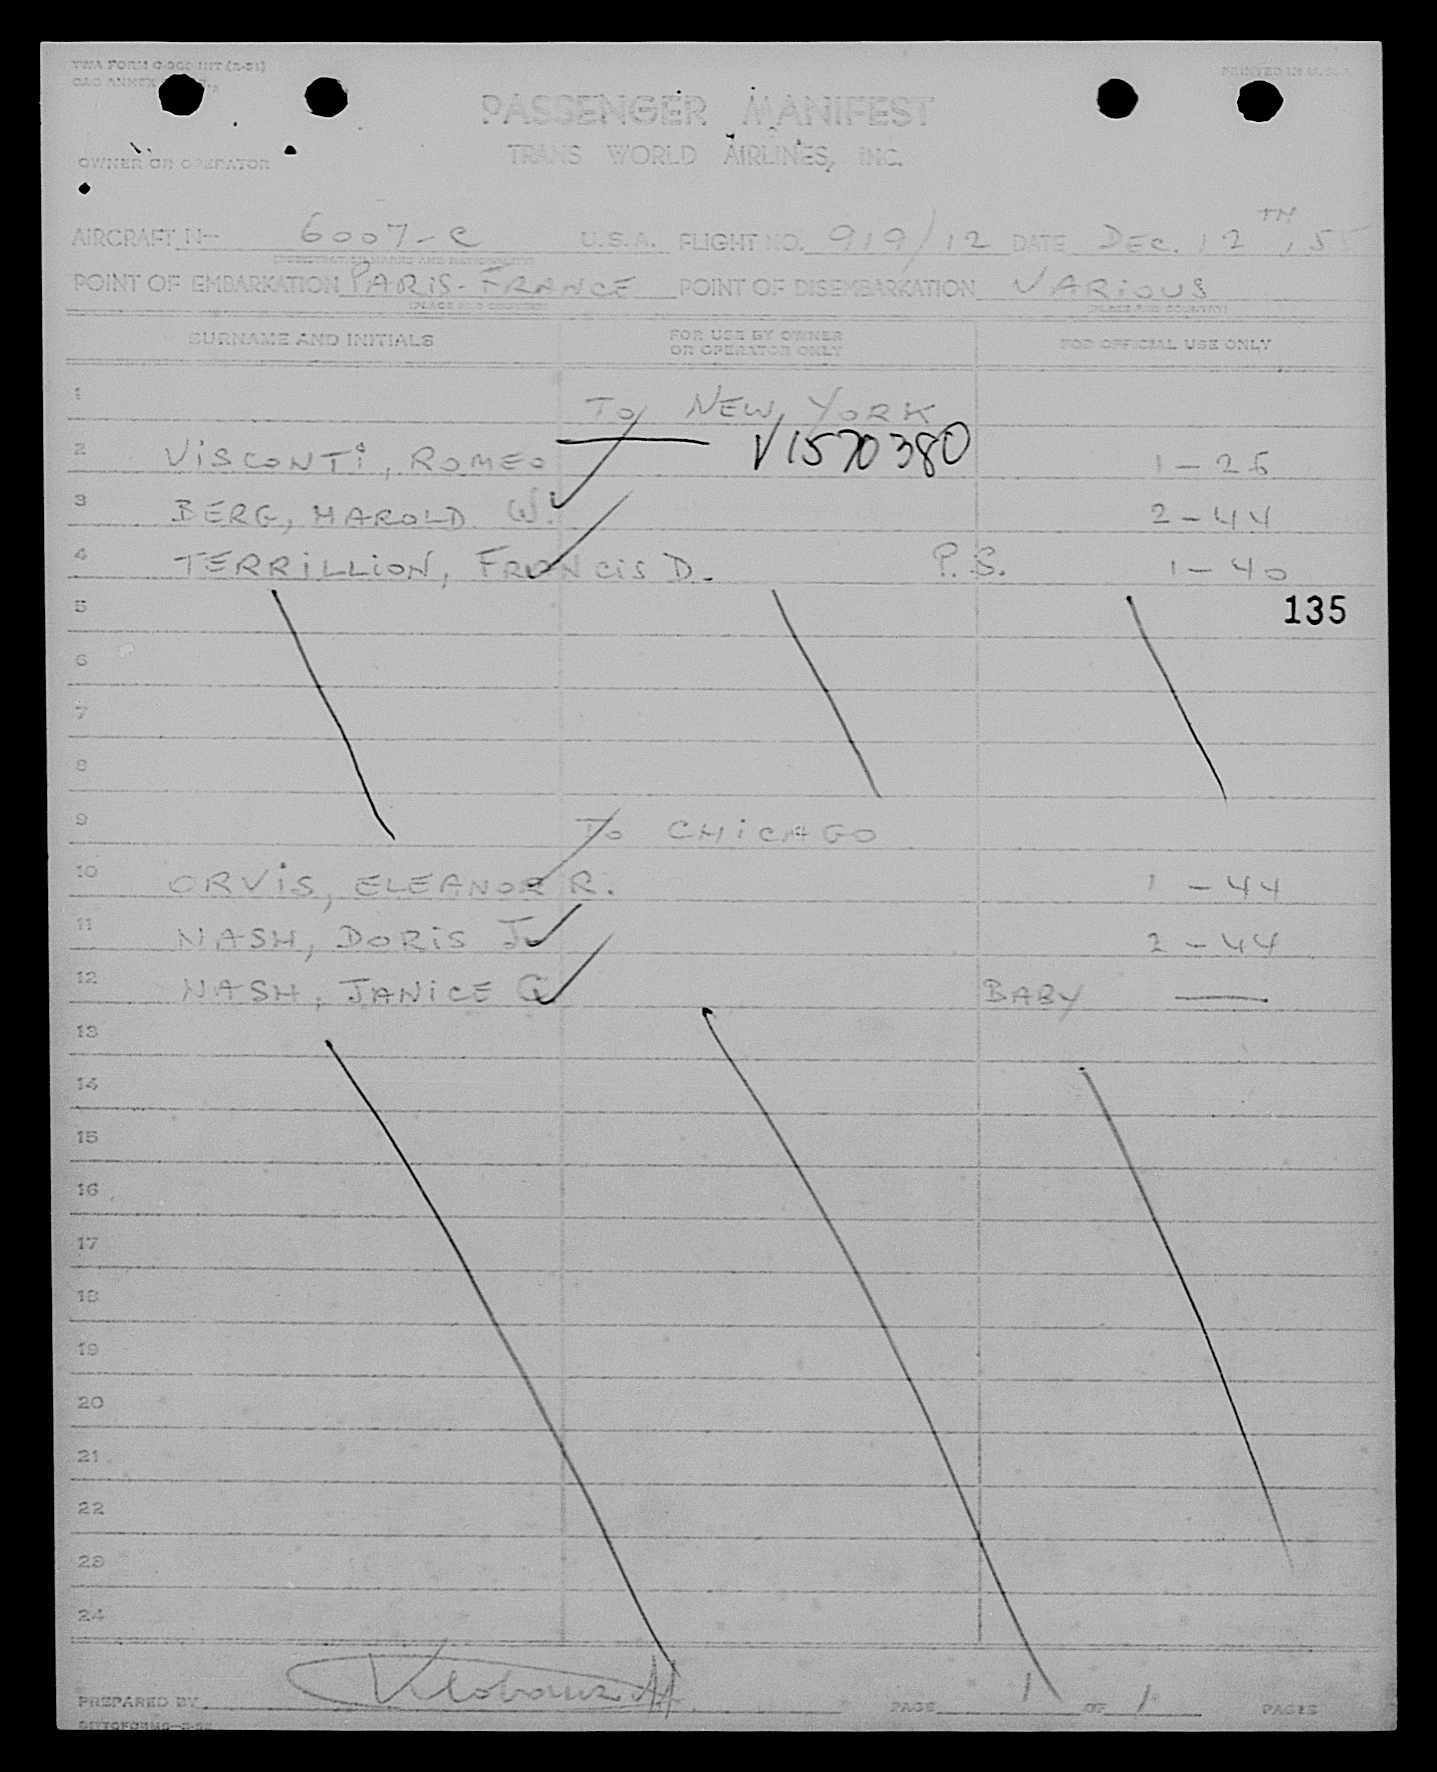 TWA FORM
PRINTED IN U.S.A.
PASSENGER MANIFEST
TRANS WORLD AIRLINES, INC.
OWNER OR OPERATOR
AIRCRAFT N- 6007-C U.S.A. FLIGHT NO. 919/12 DATE DEC. 12TH, 55
(REGISTRATION MARKS AND NATIONALITY)
POINT OF EMBARKATION PARIS-FRANCE POINT OF DISEMBARKATION VARIOUS
(PLACE AND COUNTRY) (PLACE AND COUNTRY)
SURNAME AND INITIALS FOR USE BY OWNER OR OPERATOR ONLY FOR OFFICIAL USE ONLY
1 TO NEW YORK
2 VISCONTI, ROMEO V1570380 1-26
3 BERG, HAROLD W. 2-44
4 TERRILLION, FRANCIS D. P.S. 1-40
5 135
6
7
8
9 TO CHICAGO
10 ORVIS, ELEANOR R. 1-44
11 NASH, DORIS J. 2-44
12 NASH, JANICE G BABY —
13
14
15
16
17
18
19
20
21
22
23
24
PREPARED BY PAGE 1 OF 1 PAGES